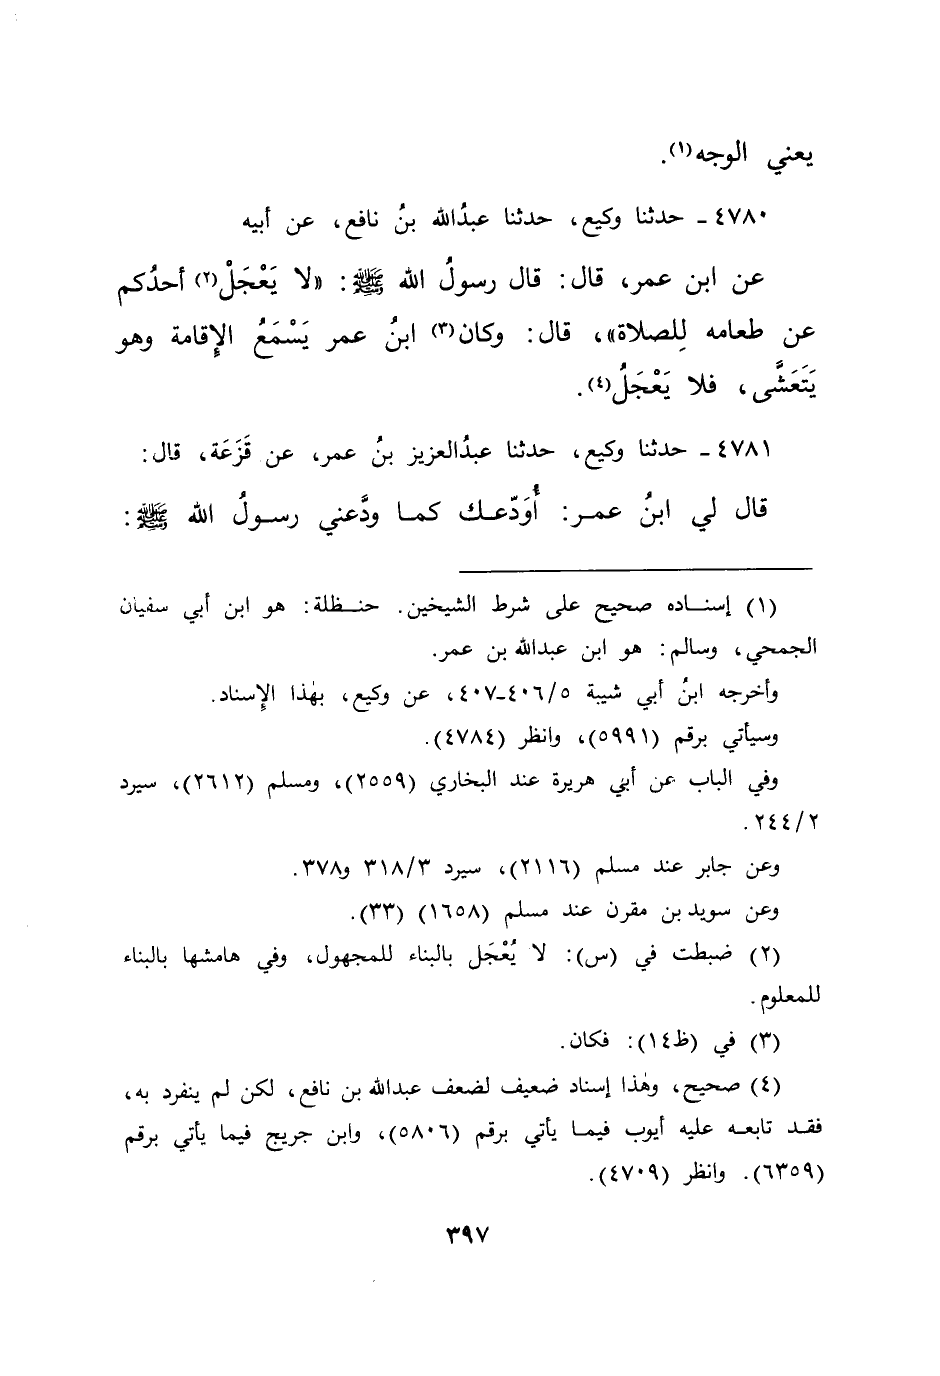 يعني الوجه(١).
٤٧٨٠ ـ حدثنا وكيع، حدثنا عبدُالله بنُ نافع، عن أبيه
عن ابن عمر، قال: قال رسولُ الله ﷺ: «لا يَعْجَلْ(٢) أحدُكم
عن طعامه لِلصلاة»، قال: وكان(٣) ابنُ عمر يَسْمَعُ الإِقامة وهو
يَتَعَشَّى، فلا يَعْجَلُ(٤).
٤٧٨١ ـ حدثنا وكيع، حدثنا عبدُالعزيز بنُ عمر، عن قَزَعَة، قال:
قال لي ابنُ عمر: أُوَدّعك كما ودَّعني رسولُ الله ﷺ:
(١) إسناده صحيح على شرط الشيخين. حنظلة: هو ابن أبي سفيان
الجمحي، وسالم: هو ابن عبدالله بن عمر.
وأخرجه ابنُ أبي شيبة ٤٠٦/٥-٤٠٧، عن وكيع، بهٰذا الإِسناد.
وسيأتي برقم (٥٩٩١)، وانظر (٤٧٨٤).
وفي الباب عن أبي هريرة عند البخاري (٢٥٥٩)، ومسلم (٢٦١٢)، سيرد
٢٤٤/٢.
وعن جابر عند مسلم (٢١١٦)، سيرد ٣١٨/٣ و٣٧٨.
وعن سويد بن مقرن عند مسلم (١٦٥٨) (٣٣).
(٢) ضبطت في (س): لا يُعْجَل بالبناء للمجهول، وفي هامشها بالبناء
للمعلوم.
(٣) في (ظ١٤): فكان.
(٤) صحيح، وهٰذا إسناد ضعيف لضعف عبدالله بن نافع، لكن لم ينفرد به،
فقد تابعه عليه أيوب فيما يأتي برقم (٥٨٠٦)، وابن جريج فيما يأتي برقم
(٦٣٥٩). وانظر (٤٧٠٩).
٣٩٧